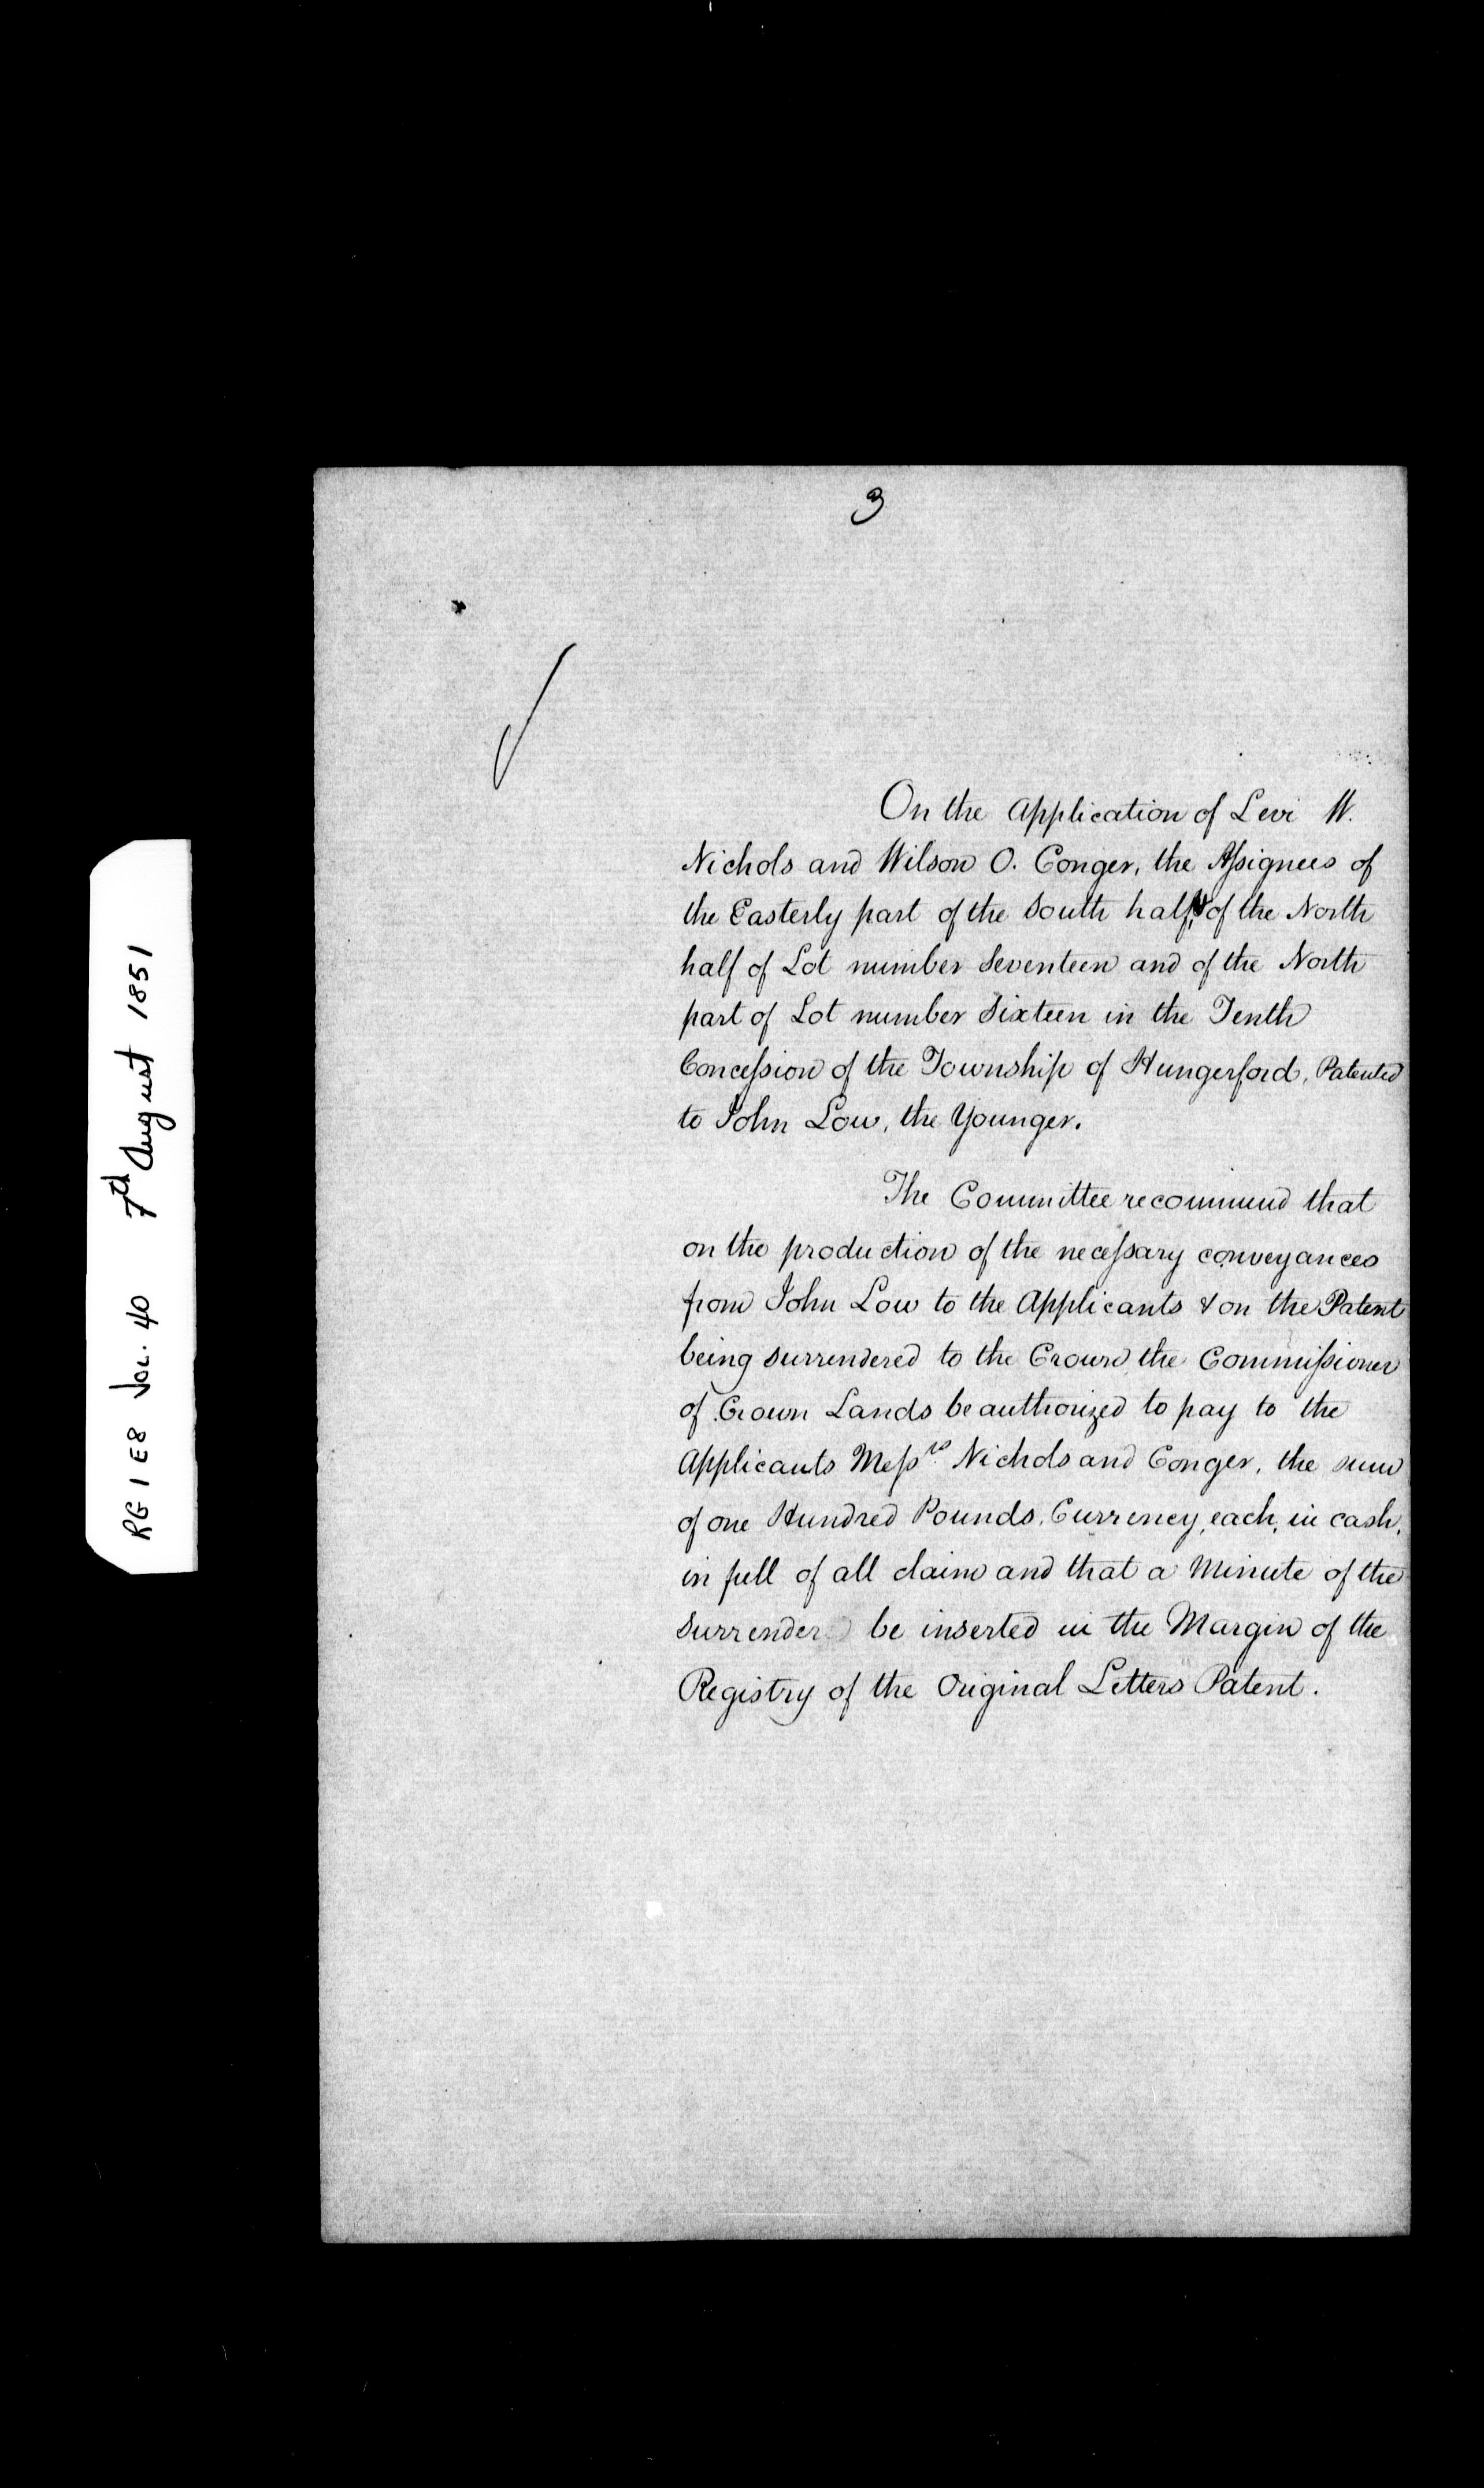 3
RG 1 E8 Vol. 40 7th August 1851
On the Application of Levi W.
Nichols and Wilson O. Conger, the Assignees of
the Easterly part of the South half, of the North
half of Lot number Seventeen and of the North
part of Lot number Sixteen in the Tenth
Concession of the Township of Hungerford, Patented
to John Low, the Younger.
The Committee recommend that
on the production of the necessary conveyances
from John Low to the Applicants & on the Patent
being surrendered to the Crown, the Commissioner
of Crown Lands be authorized to pay to the
Applicants Messrs. Nichols and Conger, the sum
of one Hundred Pounds, Currency, each, in cash,
in full of all claim and that a Minute of the
Surrender be inserted in the Margin of the
Registry of the Original Letters Patent.